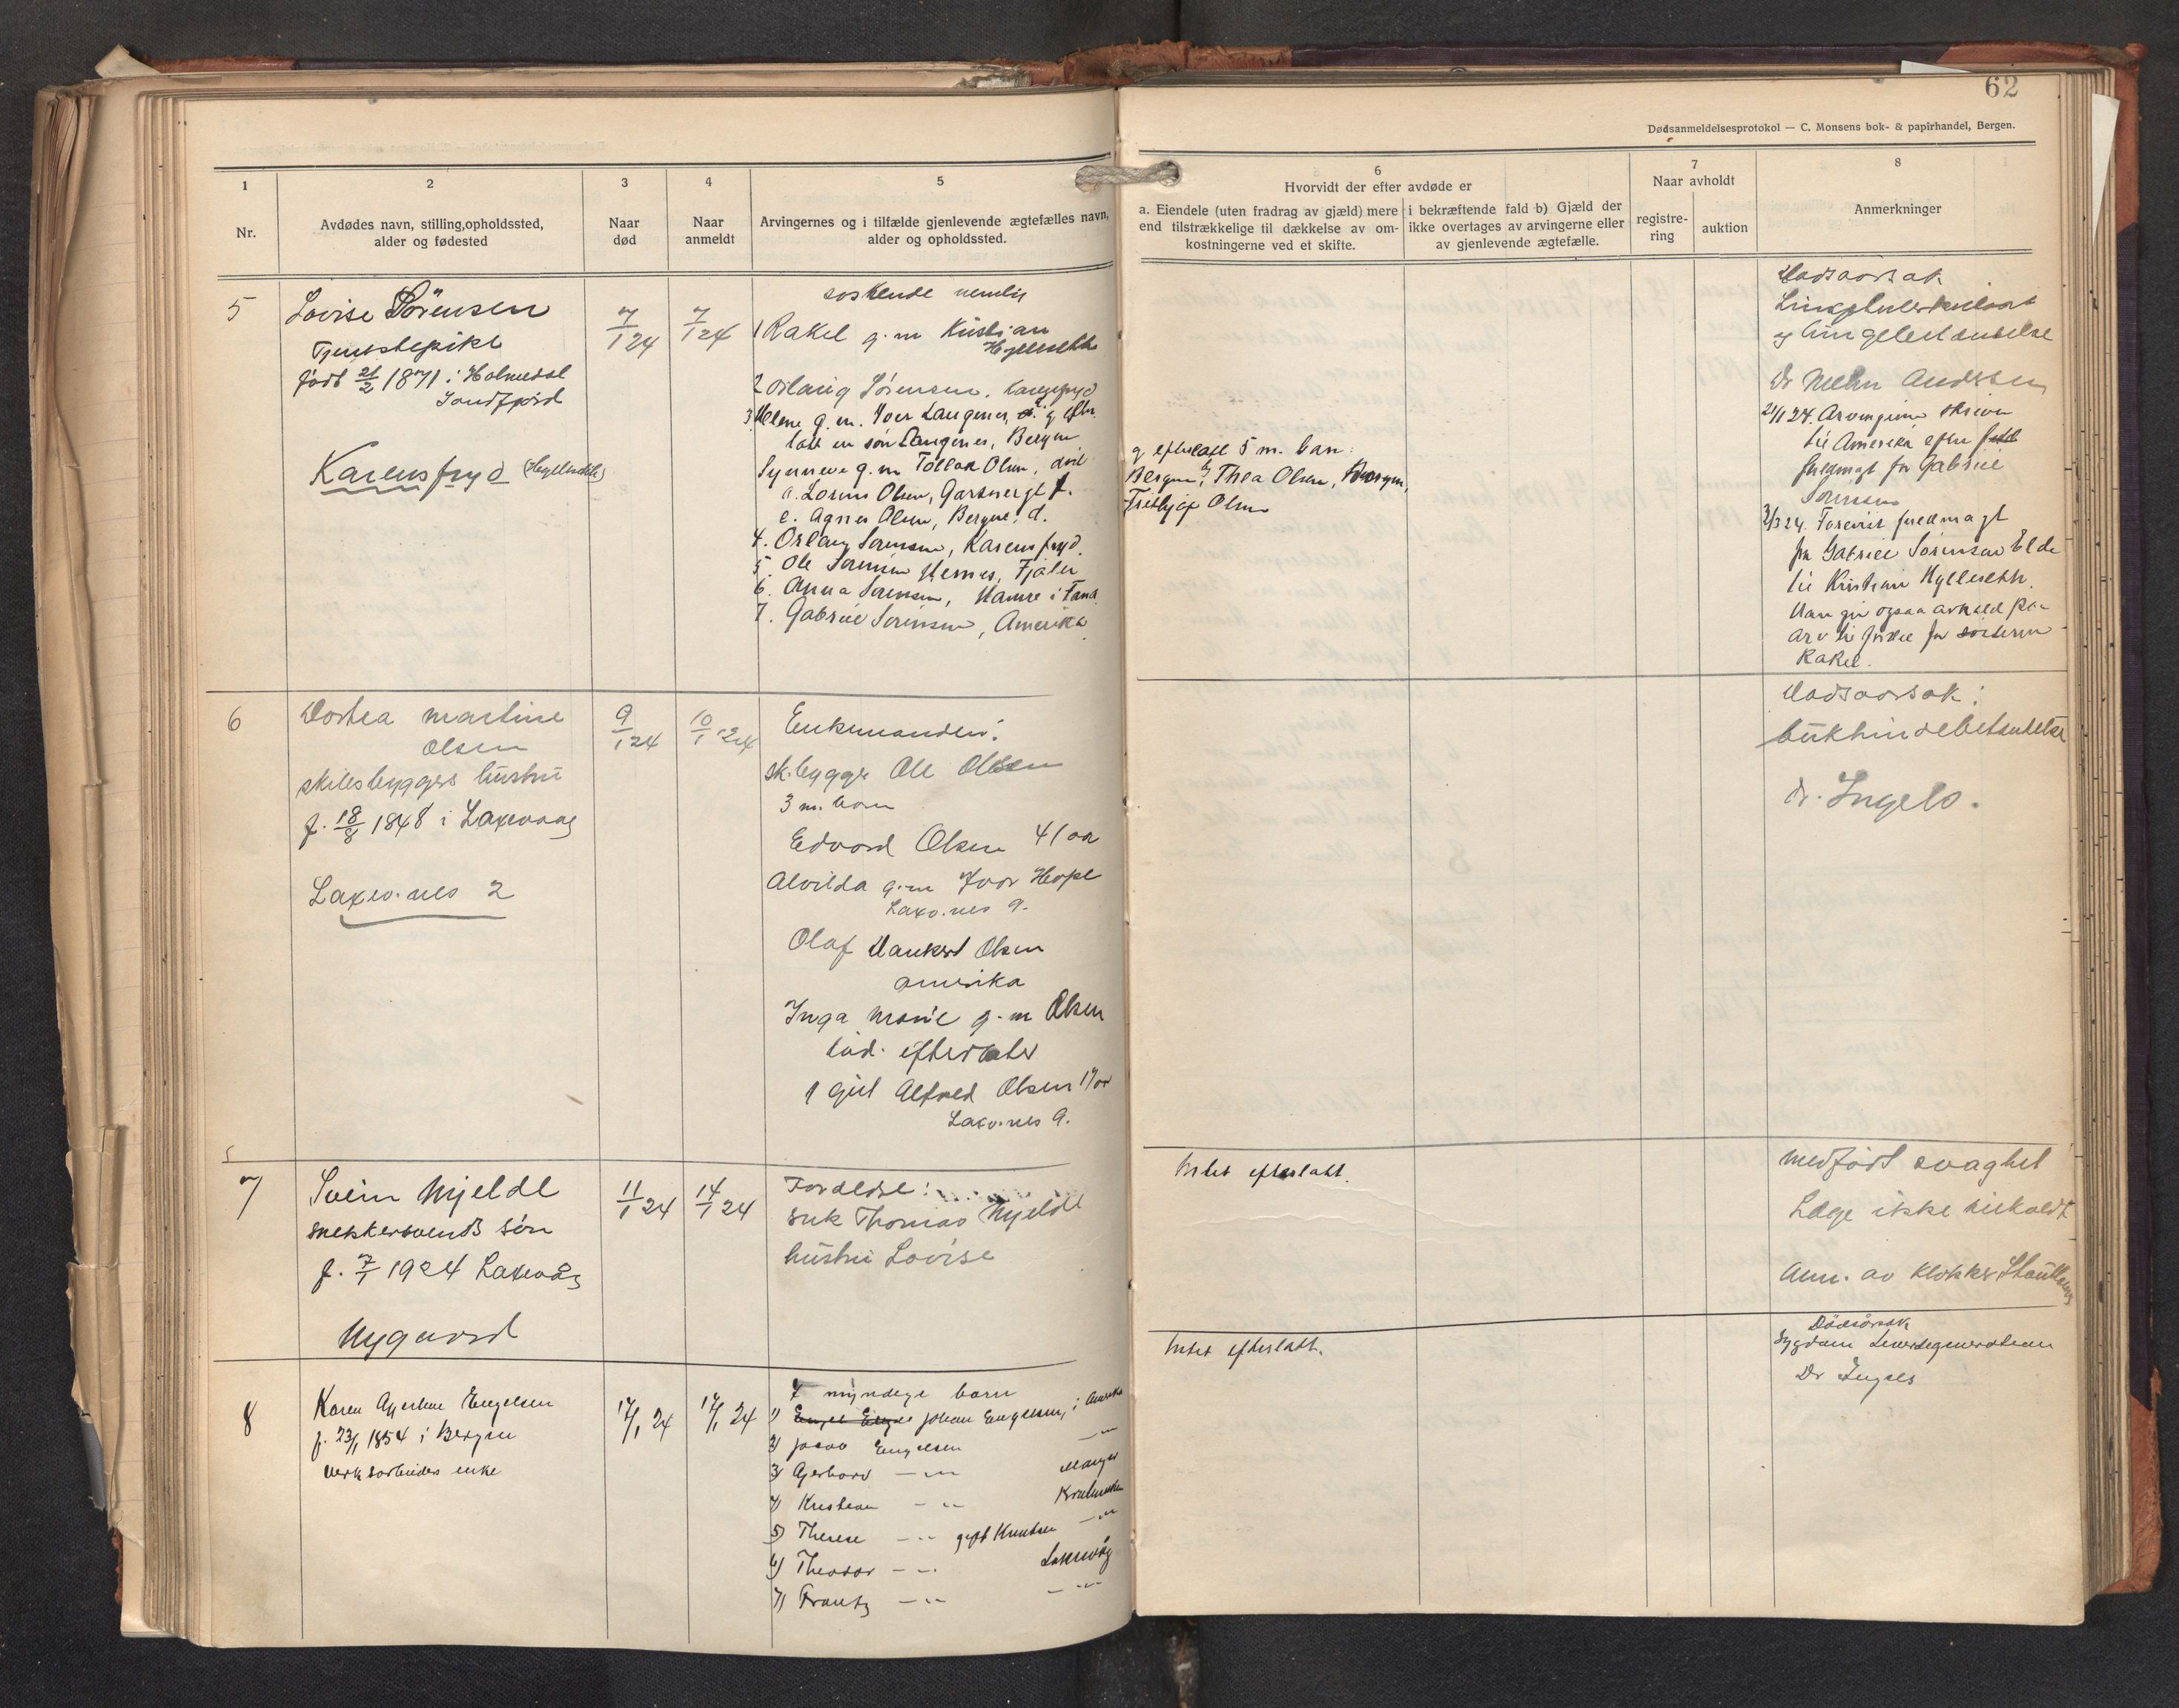 62
Dødsanmeldelsesprotokol — C. Monsens bok- & papirhandel, Bergen.
1
Nr.
2
Avdødes navn, stilling, opholdssted,
alder og fødested
3
Naar
død
4
Naar
anmeldt
5
Arvingernes og i tilfælde gjenlevende ægtefælles navn,
alder og opholdssted.
6
Hvorvidt der efter avdøde er
a. Eiendele (uten fradrag av gjæld) mere
end tilstrækkelige til dækkelse av om-
kostningerne ved et skifte.
i bekræftende fald b) Gjæld der
ikke overtages av arvingerne eller
av gjenlevende ægtefælle.
7
Naar avholdt
registre-
ring
auktion
8
Anmerkninger
5
Lovise Sörensen
Tjenstepike
født 21/2 1871 i Holmedal
Söndfjord
Karensfryd
7/1 24
7/1 24
søskende nemlig
1 Rakel g. m Kristian
Hylleseth
2 Oslaug Sørensen. Karensfryd
3 Helene g. m. Iver Langenes,
latt en søn Langenes, Bergen
Synneve g. m Tollak Olsen, död
a. Lorens Olsen, Gartnergt
c. Agnes Olsen, Bergen, d.
4. Oslaug Sørensen, Karensfryd.
5 Ole Sørensen Hernes, Fjaler
6. Anna Sørensen, Hamre i Fana
7. Gabriel Sørensen, Amerika
g efterlatt 5 m. barn:
Bergen, Thea Olsen, Bergen,
Fritjof Olsen
Dødsaarsak
og lungebetændelse
Dr Andersen
21/1 24. Arvingerne skriver
til Amerika efter
fuldmagt for Gabriel
Sørensen
3/3 24. Forevist fuldmagt
fra Gabriel Sørensen Elde
til Kristian Hylleseth.
Han gir ogsaa avkald paa
arv til fordel for søsteren
Rakel.
6
Dortea Martine
Olsen
skibsbyggers hustru
f. 18/8 1848 i Laxevaag
Laxev.nes 2
9/1 24
10/1 24
Enkemanden:
sk.bygger Ole Olsen
3 m. barn
Edvard Olsen 41 aar
Alvilda g. m Ivar Hope
Laxv.nes 9.
Olaf Dankert Olsen
amerika
Inga Marie g. m Olsen
död. efterlater
1 gut Alfred Olsen 17 aar
Laxv.nes 9.
Dødsaarsak:
bukhindebetændelse
dr. Ingels.
7
Svein Mjelde
snekkersvends søn
f. 7/1 1924 Laxevåg
Nygaard
11/1 24
14/1 24
Foreldre:
snk Thomas Mjelde
hustru Lovise
Intet efterlatt.
medfødt svaghet
Læge ikke tilkaldt
Anm. av klokker
8
Karen Engelsen
f. 23/1 1854 i Bergen
verksarbeiders enke
17/1 24
17/1 24
7 myndige barn
1) Johan Engelsen, i Amerika
2) Jacob Engelsen — " —
3) Gerhard — " — Manger
4) Kristian — " —
5) Therese — " — gift Knutsen — " —
6) Theodor — " — Laksevåg
7) Frantz — " — — " —
Intet efterlatt.
Dödsårsak
Sygdom Leverdegeneration
Dr Ingels